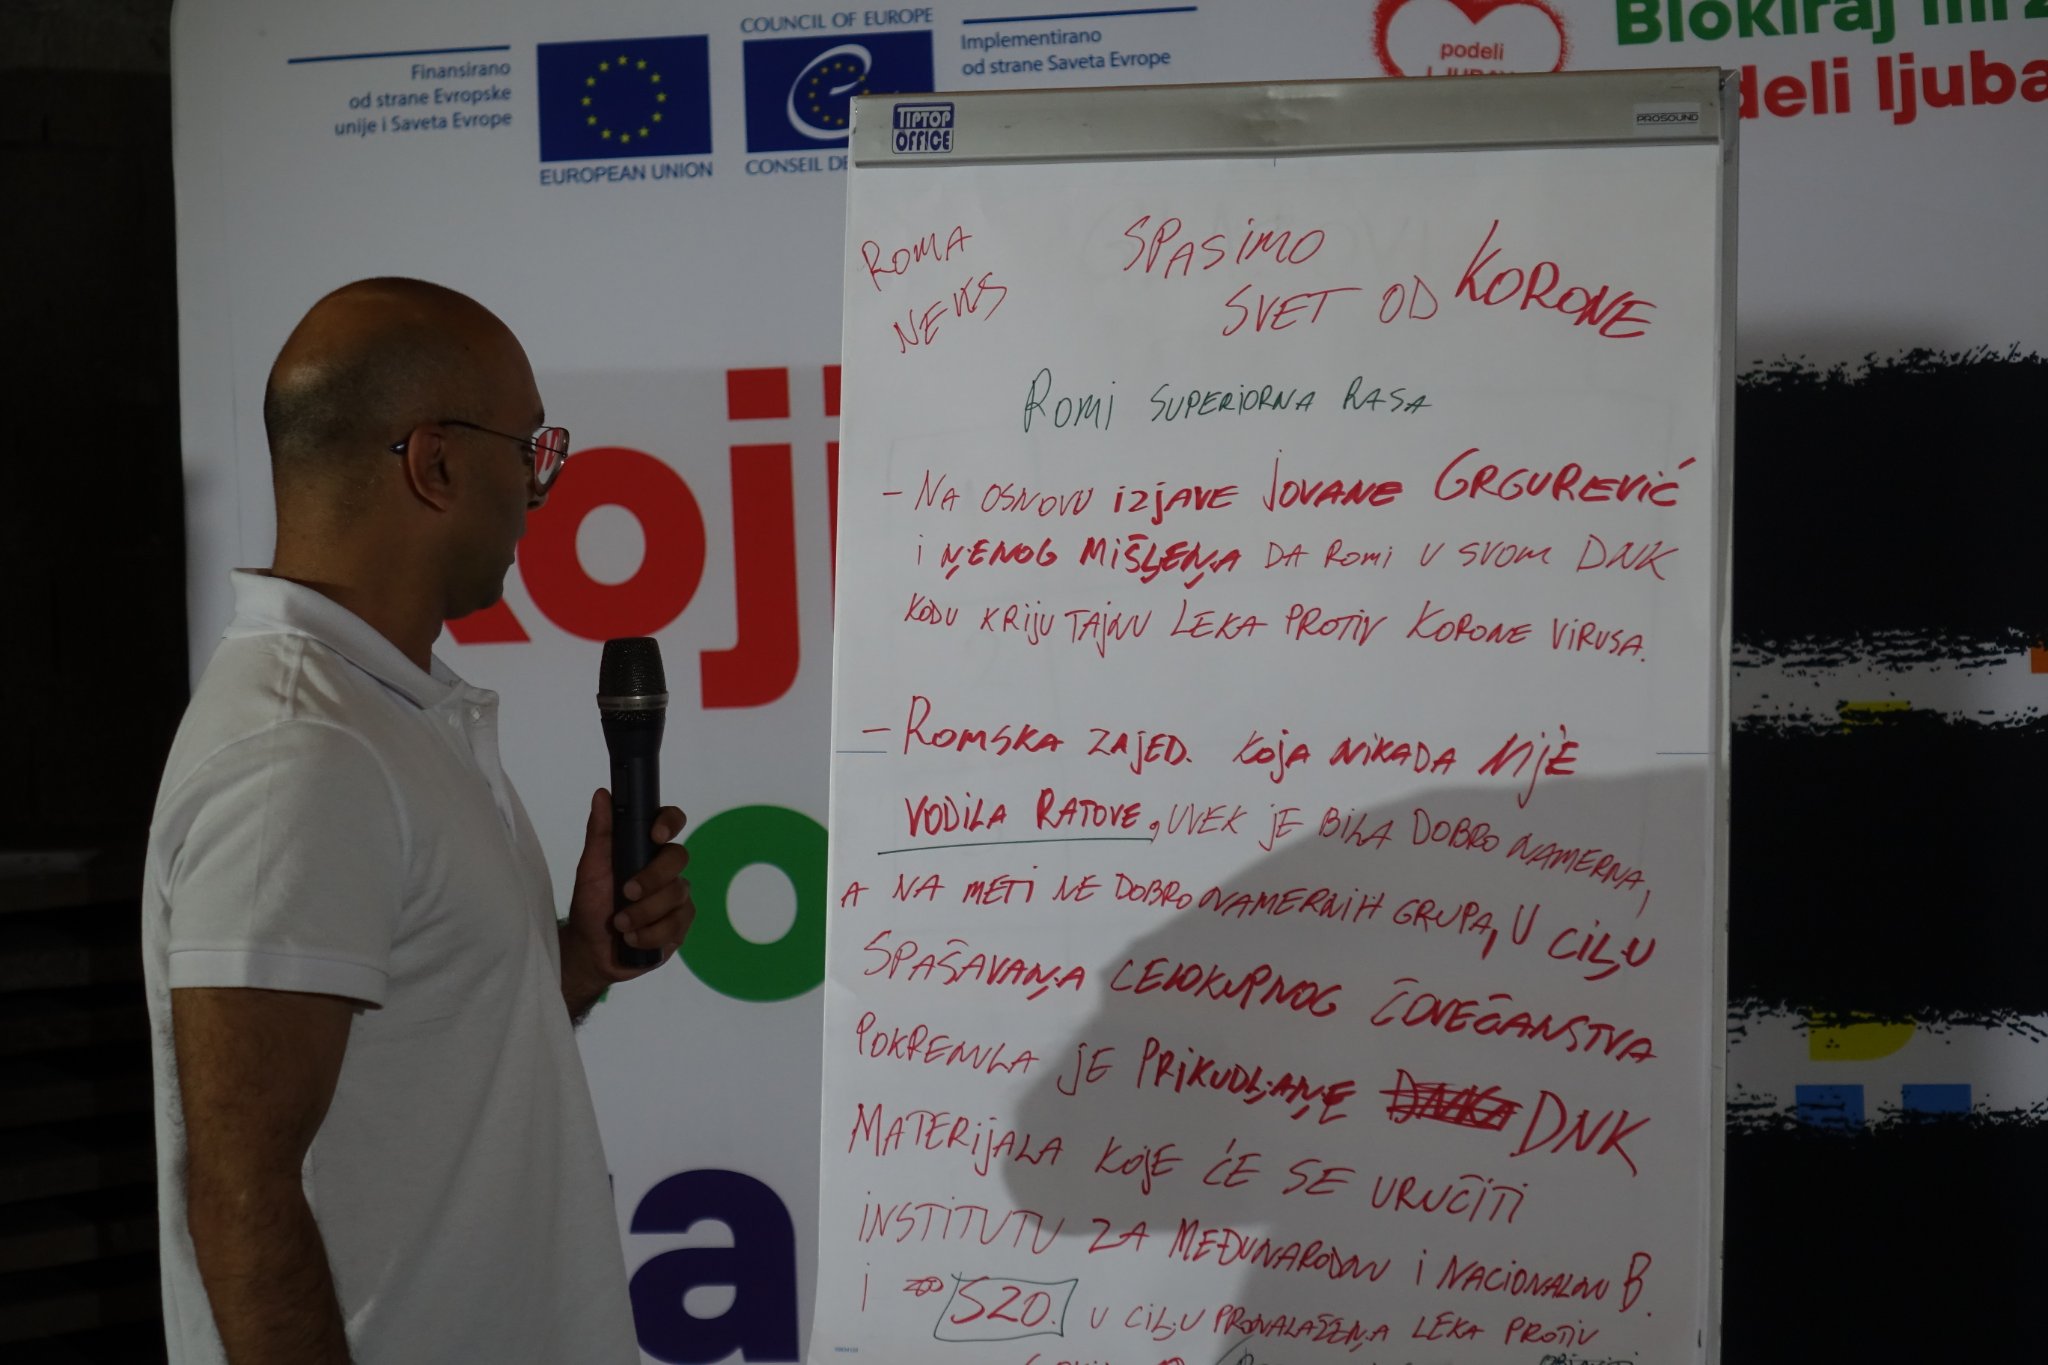 Finansirano
od strane Evropske
unije i Saveta Evrope
EUROPEAN UNION
COUNCIL OF EUROPE
CONSEIL DE
Implementirano
od strane Saveta Evrope
podeli
Blokiraj
deli ljuba
TIPTOP
OFFICE
PROSOUND
koji
o
a
ROMA
NEWS
SPASIMO
SVET OD KORONE
ROMI SUPERIORNA RASA
- NA OSNOVU IZJAVE JOVANE GRGUREVIĆ
I ŅENOG MIŠĻEŅA DA ROMI U SVOM DNK
KODU KRIJU TAJNU LEKA PROTIV KORONE VIRUSA.
- ROMSKA ZAJED. KOJA NIKADA NIJE
VODILA RATOVE, UVEK JE BILA DOBRONAMERNA,
A NA METI NE DOBRONAMERNIH GRUPA, U CIĻU
SPAŠAVAŅA CELOKUPNOG ČOVEČANSTVA
POKRENULA JE PRIKUDĻAŅE DNK
MATERIJALA KOJE ĆE SE URUČITI
INSTITUTU ZA MEĐUNARODNU I NACIONALNU B.
I SZO. U CIĻU PRONALAŽEŅA LEKA PROTIV